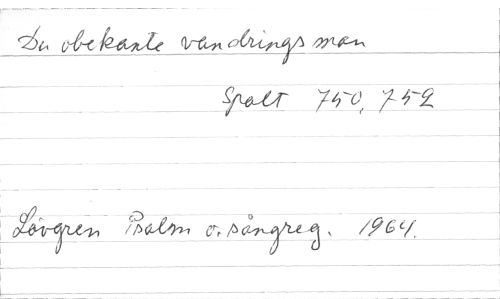 Du obekante vandrings man
Spalt 750, 752
Lövgren Psalm o. sångreg. 1964.